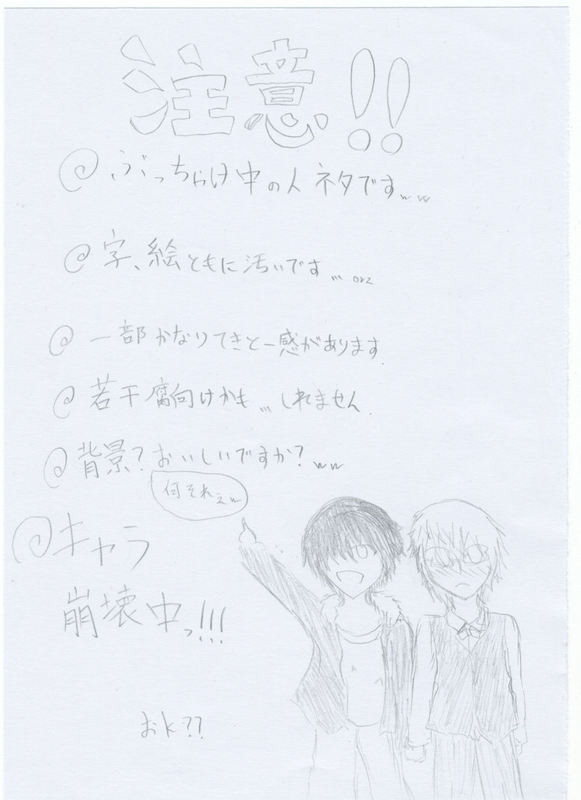 注意!!
@ ぶっちゃけ中の人ネタですww
@ 字、絵ともに汚いです… orz
@ 一部かなりてきとー感があります.
@ 若干腐向けかも…しれません.
@ 背景?おいしいですか?ww
何それぇw
@ キャラ
崩壊中っ!!!
おk??